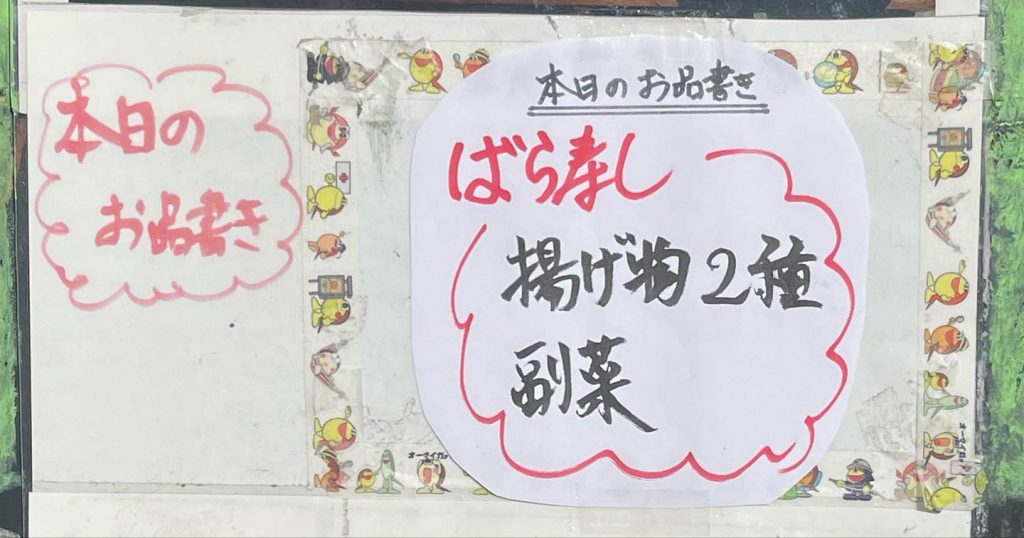 本日の
お品書き
本日のお品書き
ばら寿し
揚げ物2種
副菜
オーマイガッ!